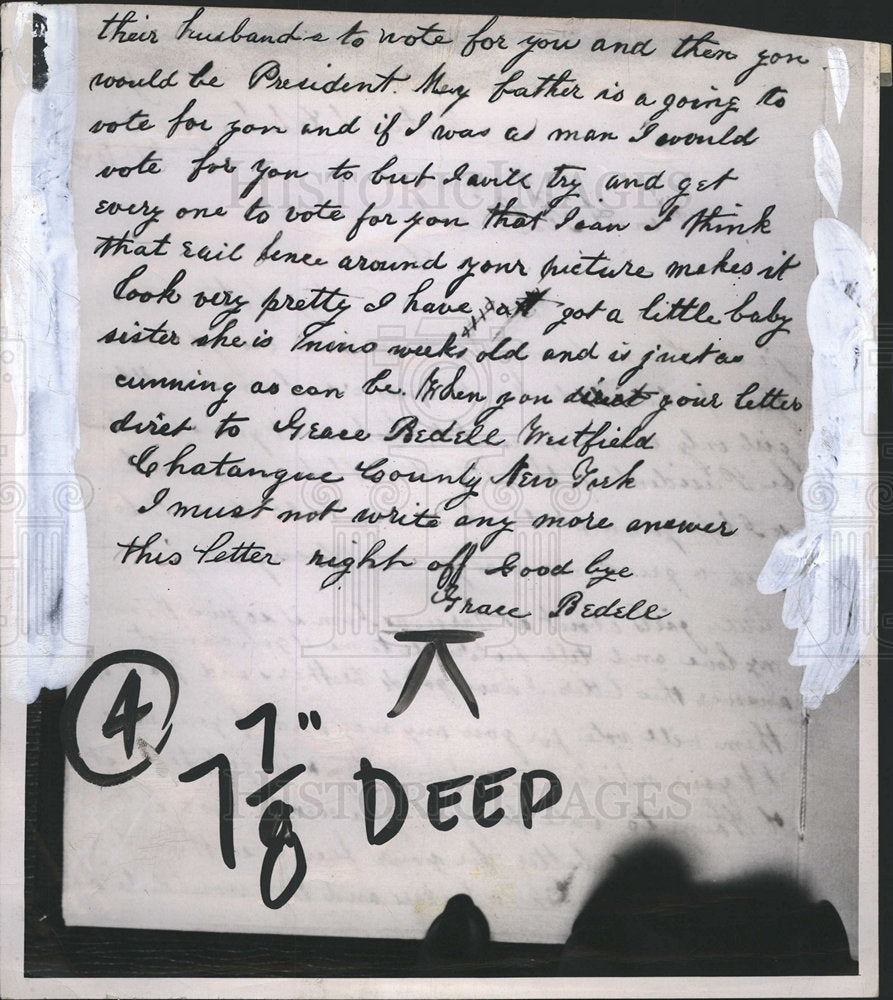 their husband's to vote for you and then you
would be President. My father is a going to
vote for you and if I was a man I would
vote for you to but I will try and get
every one to vote for you that I can I think
that rail fence around your picture makes it
look very pretty I have got a little baby
sister she is nine weeks old and is just as
cunning as can be. When you direct your letter
dirct to Grace Bedell Westfield
Chatauque County New York
I must not write any more answer
this letter right off Good bye
Grace Bedell
HISTORIC IMAGES
4
7 7/8" DEEP
HISTORIC IMAGES